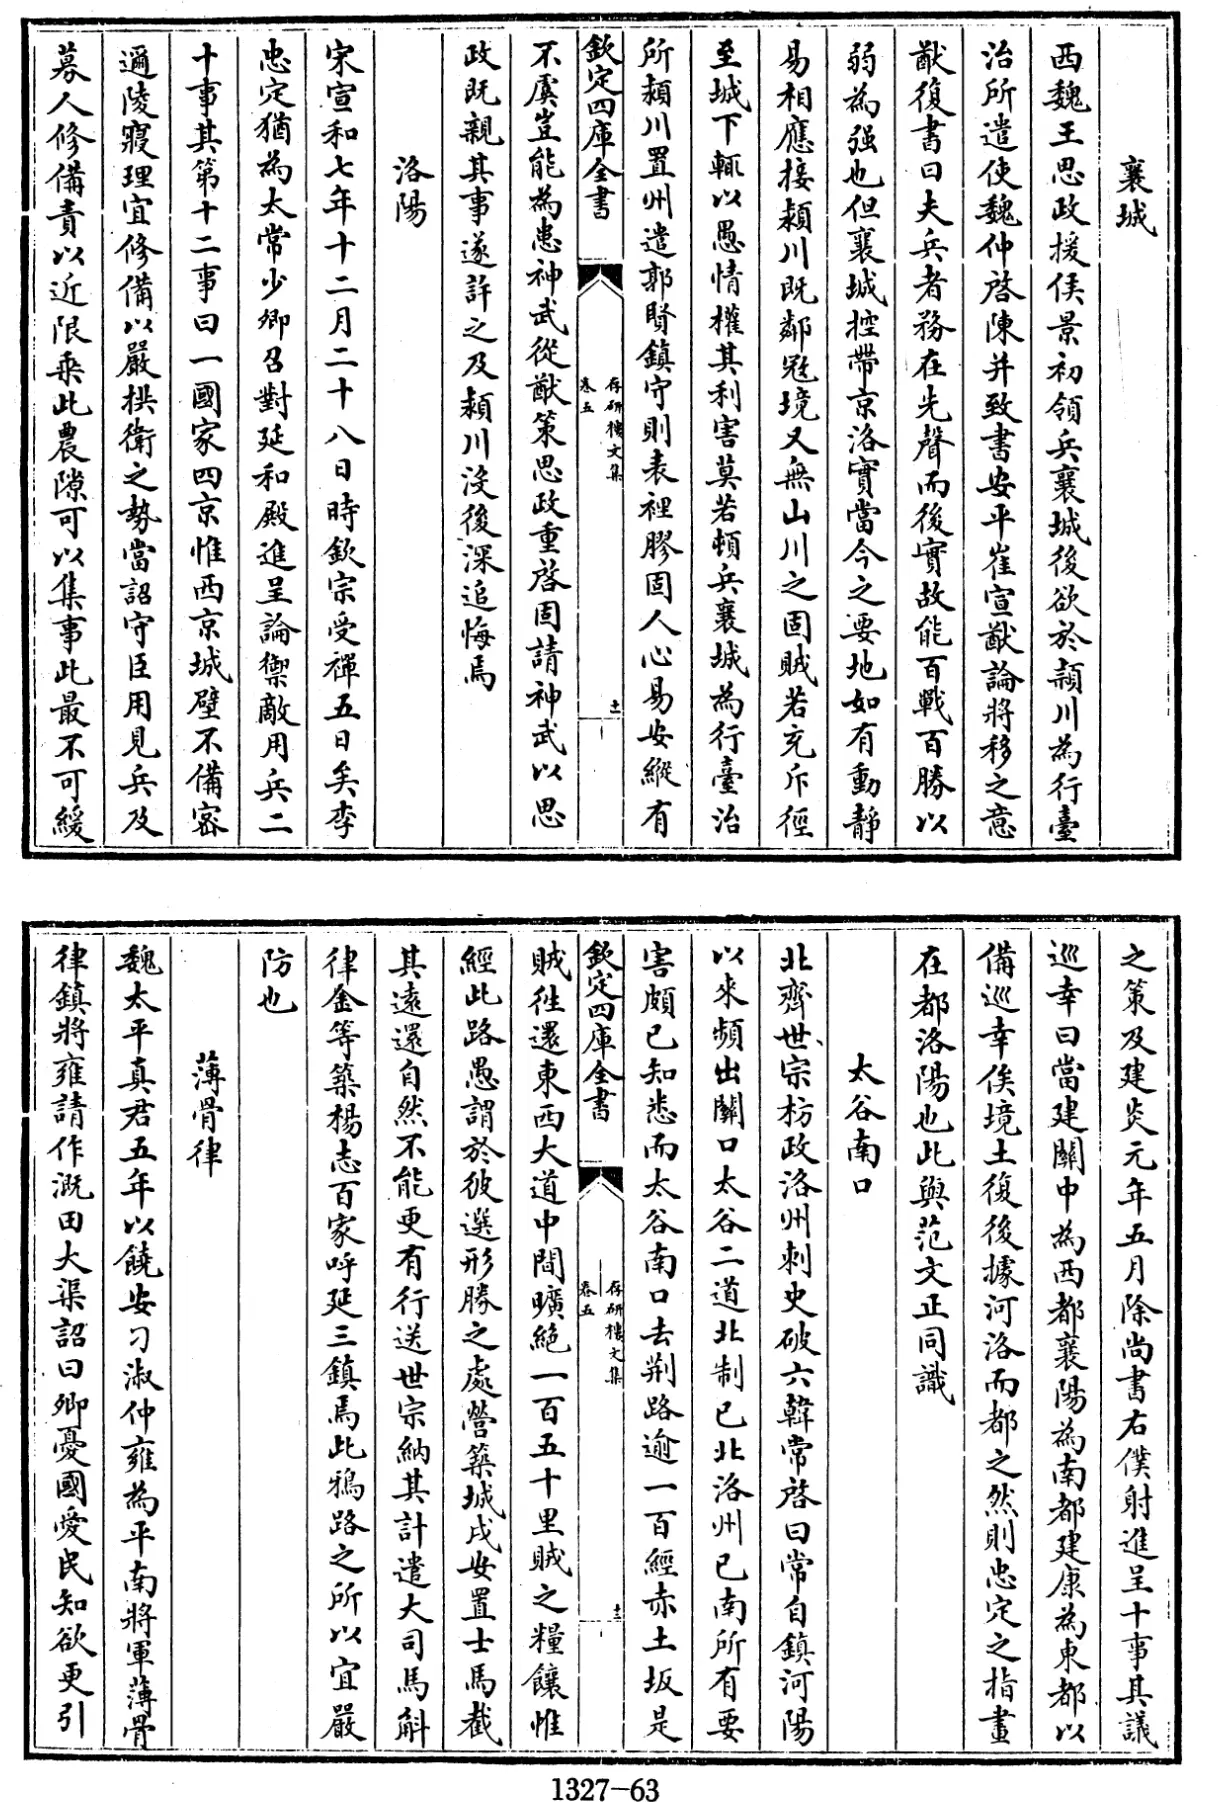 襄城
西魏王思政援侯景初領兵襄城後欲於潁川為行臺
治所遣使魏仲啓陳并致書安平崔宣猷論將移之意
猷復書曰夫兵者務在先聲而後實故能百戰百勝以
弱為强也但襄城控帶京洛實當今之要地如有動靜
易相應接潁川既鄰冦境又無山川之固賊若充斥徑
至城下輒以愚情權其利害莫若頓兵襄城為行臺治
所潁川置州遣郭賢鎮守則表裡膠固人心易安縱有
欽定四庫全書
存研樓文集
卷五
十一
不虞豈能為患神武從猷策思政重啓固請神武以思
政既親其事遂許之及潁川沒後深追悔焉
洛陽
宋宣和七年十二月二十八日時欽宗受禪五日矣李
忠定猶為太常少卿召對延和殿進呈論禦敵用兵二
十事其第十二事曰一國家四京惟西京城壁不備密
邇陵寢理宜修備以嚴拱衛之勢當詔守臣用見兵及
募人修備責以近限乘此農隙可以集事此最不可緩
之策及建炎元年五月除尚書右僕射進呈十事其議
巡幸曰當建關中為西都襄陽為南都建康為東都以
備巡幸俟境土復後據河洛而都之然則忠定之指畫
在都洛陽也此與范文正同識
太谷南口
北齊世宗枋政洛州刺史破六韓常啓曰常自鎮河陽
以來頻出關口太谷二道北制已北洛州已南所有要
害頗已知悉而太谷南口去荆路逾一百經赤土坂是
欽定四庫全書
存研樓文集
卷五
十二
賊徃還東西大道中間曠絶一百五十里賊之糧饟惟
經此路愚謂於彼選形勝之處營築城戍安置士馬截
其遠還自然不能更有行送世宗納其計遣大司馬斛
律金等築楊志百家呼延三鎮焉此鴉路之所以宜嚴
防也
薄骨律
魏太平真君五年以饒安刁淑仲雍為平南將軍薄骨
律鎮將雍請作溉田大渠詔曰卿憂國愛民知欲更引
1327-63